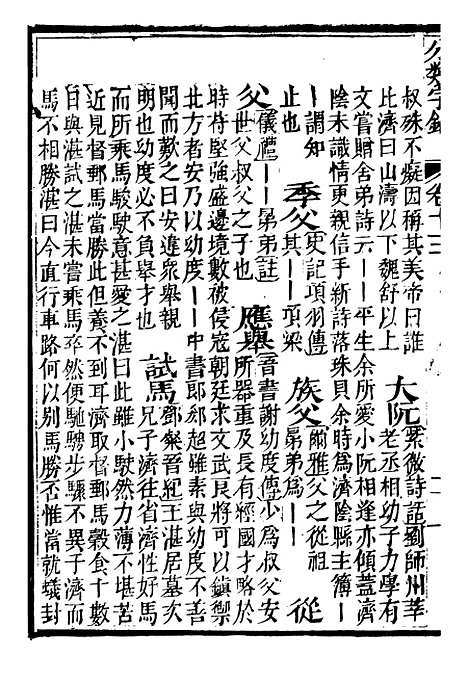 叔殊不癡因稱其美帝曰誰
比濟曰山濤以下魏舒以上
大阮
紫薇詩話劉師州莘
老丞相幼子力學有
文嘗贈舍弟詩云｜｜平生余所愛小阮相逢亦傾蓋濟
陰未識情更親信手新詩落珠貝余時爲濟陰縣主簿｜
｜謂知
止也
季父
史記項羽傳
其｜｜項梁
族父
爾雅父之從祖
晜弟爲｜｜
從
父
儀禮｜｜晜弟註
世父叔父之子也
應舉
晉書謝幼度傳少爲叔父安
所器重及長有經國才略於
時苻堅強盛邊境數被侵寇朝廷求文武良將可以鎮禦
北方者安乃以幼度｜｜中書郎郄超雖素與幼度不善
聞而歎之曰安違衆舉親
明也幼度必不負舉才也
試馬
鄧粲晉紀王湛居墓次
兄子濟往省濟性好馬
而所乘馬駿駛意甚愛之湛曰此雖小駛然力薄不堪苦
近見督郵馬當勝此但養不到耳濟取督郵馬穀食十數
日與湛試之湛未嘗乘馬卒然便馳騁步驟不異子濟而
馬不相勝湛曰今直行車路何以別馬勝否惟當就蟻封